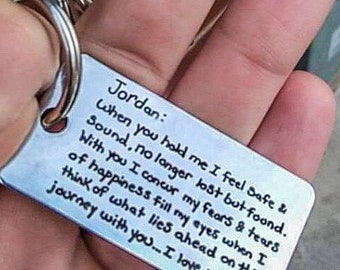 Jordan:
When you hold me I feel safe &
Sound, no longer lost but found.
With you I concur my fears & tears
of happiness fill my eyes when I
think of what lies ahead on th
journey with you... I love